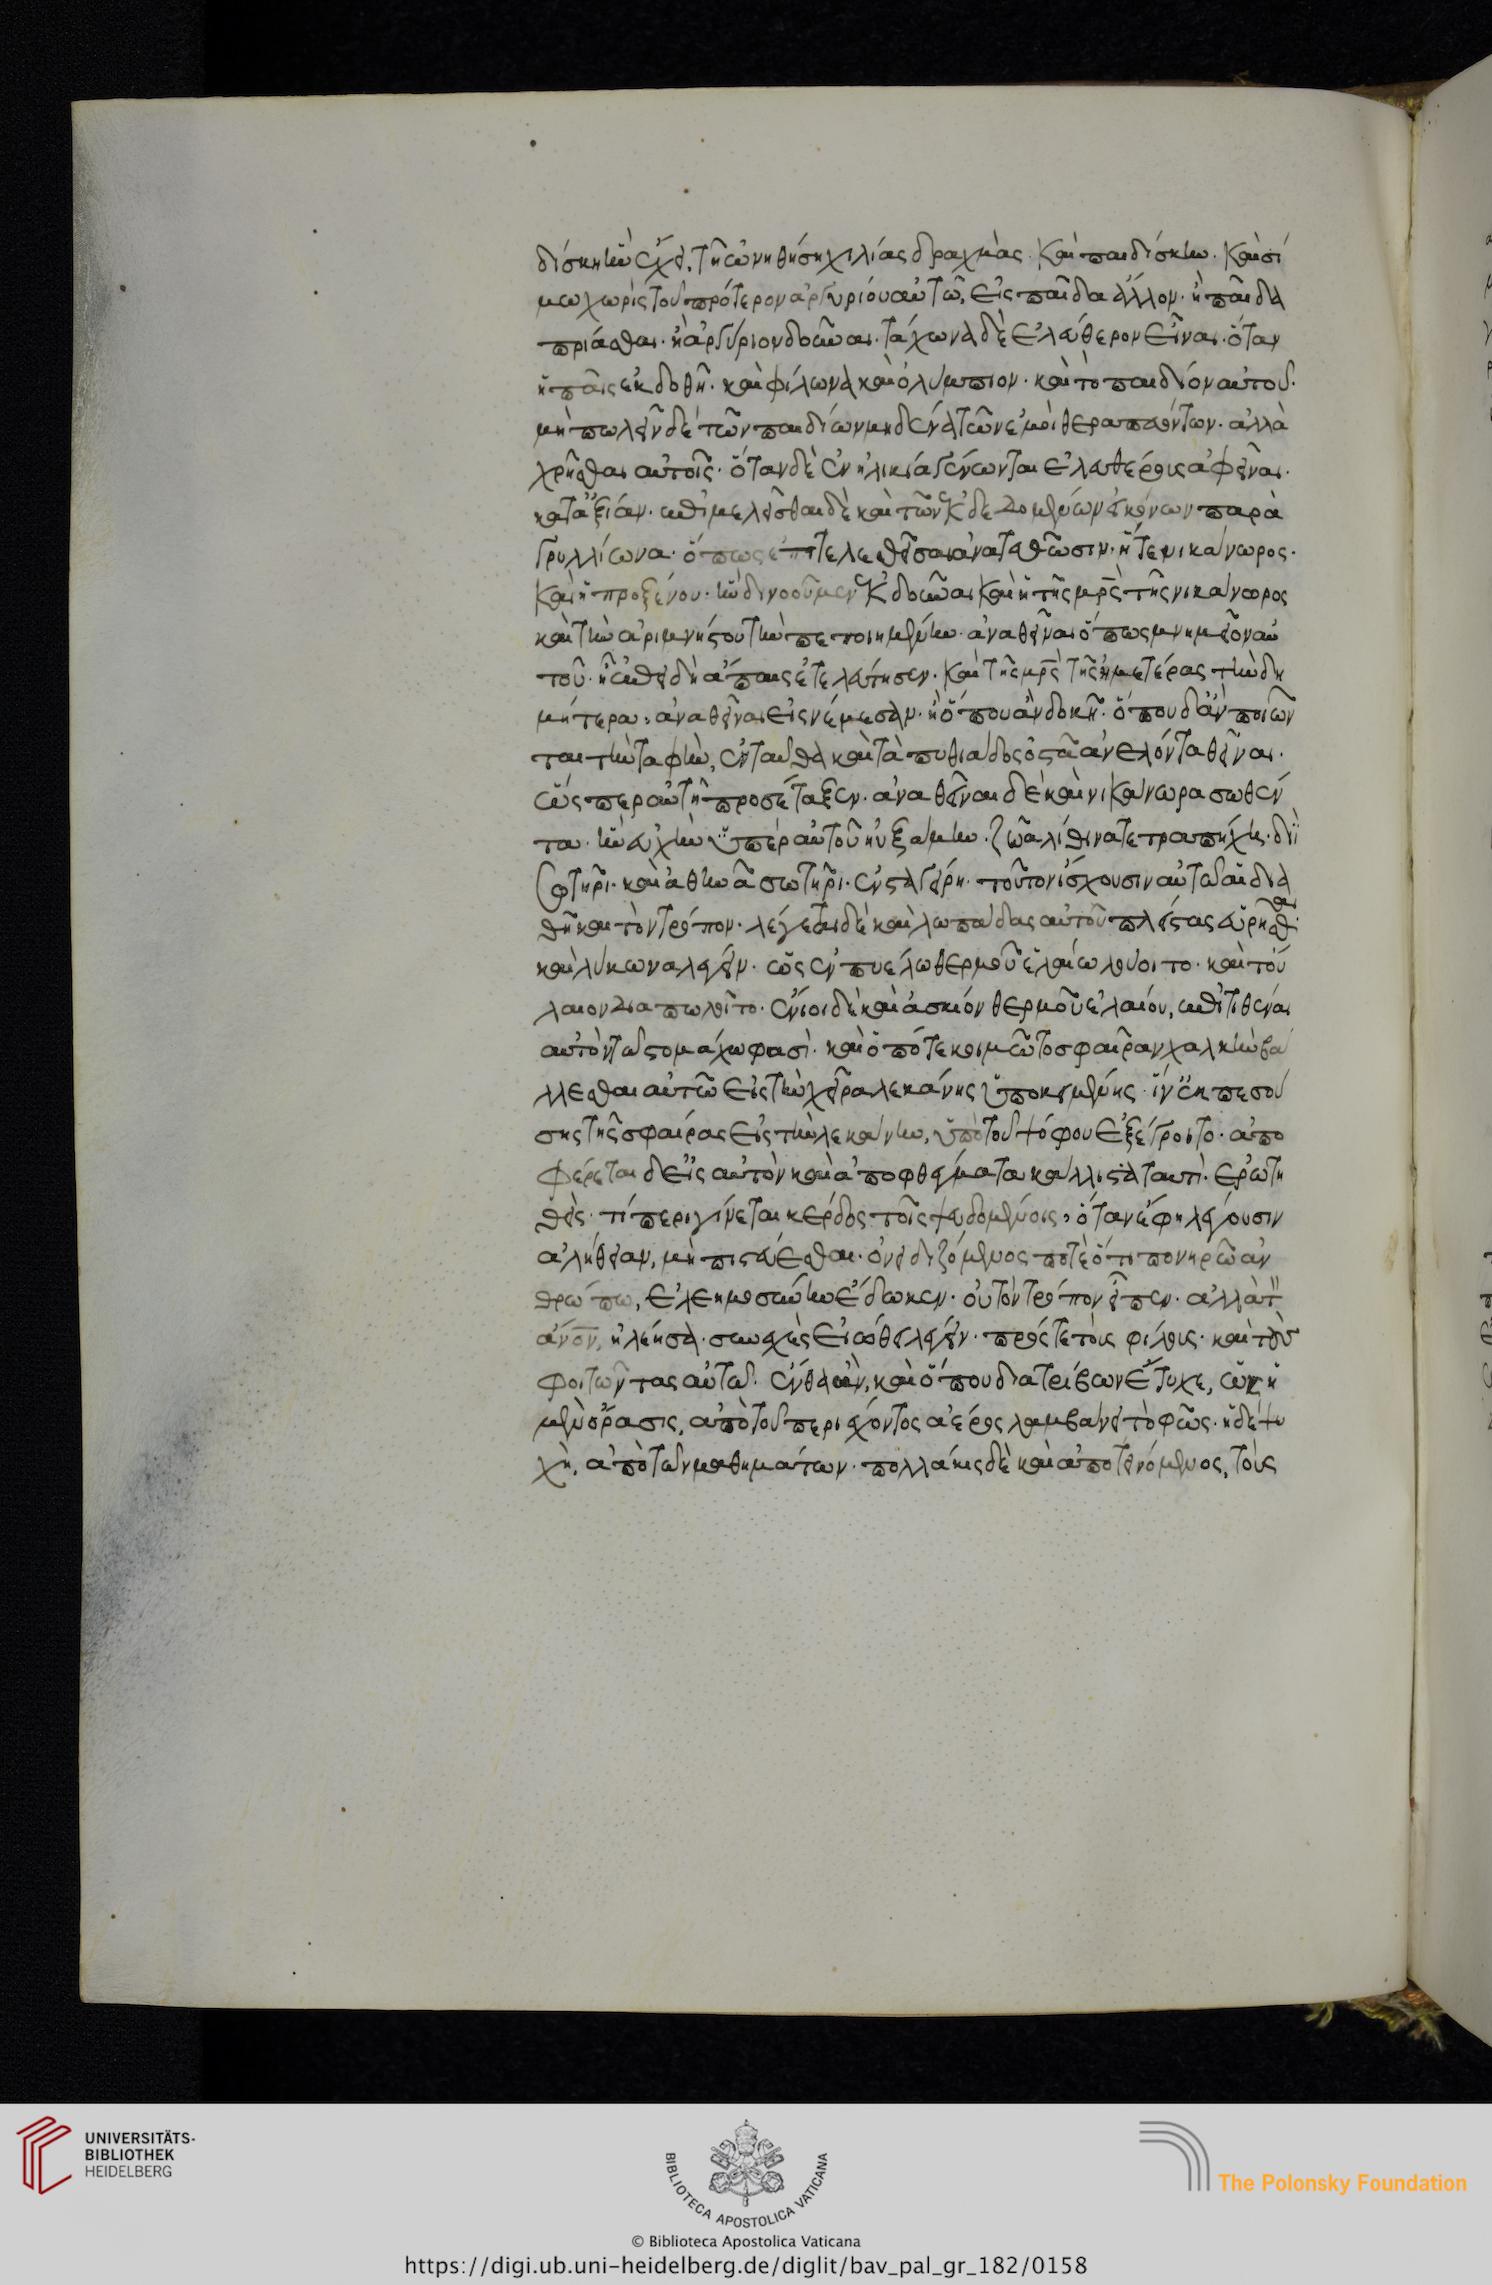 δίσκην ἣν ἔχει, τῆ ὠνηθήση χιλίας δραχμὰς. καὶ παιδίσκην. καὶ σί
μω χωρὶς τοῦ πρότερον ἀργυρίου αὐτῶ, εἰς παῖδα ἄλλον. ἢ παῖδα
πρίασθαι. ἢ ἀργύριον δοῦναι. τάχωνα δὲ ἐλεύθερον εἶναι. ὅταν
ἡ παῖς ἐκδοθῆ. καὶ φίλωνα καὶ ὀλύμπιον. καὶ τὸ παιδίον αὐτοῦ.
μὴ πωλεῖν δὲ τῶν παιδίων μηδένα τῶν ἐμοὶ θεραπευόντων. ἀλλὰ
χρῆσθαι αὐτοῖς. ὅταν δὲ ἐν ἡλικία γένωνται ἐλευθέρους ἀφεῖναι.
κατ' ἀξίαν. ἐπιμελεῖσθαι δὲ καὶ τῶν ἐκδεδομένων εἰκόνων παρὰ
γρυλλίωνα. ὅπως ἐπιτελεσθεῖσαι ἀνατεθῶσιν. ἥτε νικάνωρος.
καὶ ἡ προξένου. ἣν διενοούμην ἐκδοῦναι καὶ ἡ τῆς μρς τῆς νικάνορος
καὶ τὴν ἀριμνήστου τὴν πεποιημένην. ἀναθεῖναι ὅπως μνημεῖον αὐ
τοῦ. ἢ ἐπειδὴ ἄπαις ἐτελεύτησεν. καὶ τῆς μρς τῆς ἡμετέρας τὴν δη
μήτερα, ἀναθεῖναι εἰς νέμεσαν. ἢ ὅπου ἂν δοκῆ. ὅπου δ' ἂν ποιῶν
ται τὴν ταφὴν, ἐνταῦθα καὶ τὰ πυθιάδος ὀστᾶ ἀνελόντα θεῖναι.
ὥσπερ αὐτὴ προσέταξεν. ἀναθεῖναι δὲ καὶ νικάνωρα σωθέν
τα. ἣν εὐχὴν ὑπὲρ αὐτοῦ ηὐξάμην. ζῶα λίθινα τετραπήχη. διῒ
σωτῆρι. καὶ ἀθηνᾶ σωτῆρι. ἐν σταγείρη. τοῦτον ἴσχουσιν αὐτῶ αἱ δια
θῆκαι τὸν τρόπον. λέγεται δὲ καὶ λωπάδας αὐτοῦ πλείστας εὑρῆσθαι.
καὶ λύκωνα λέγειν. ὡς ἐν πυέλω θερμοῦ ἐλαίω λούοιτο. καὶ τού
λαιον διαπωλοῖτο. ἔνιοι δὲ καὶ ἀσκίον θερμοῦ ἐλαίου, ἐπιτιθέναι
αὐτὸν τῶ στομάχω φασὶ. καὶ ὁπότε κοιμῶτο σφαῖραν χαλκὴν βά
λλεσθαι αὐτῶ εἰς τὴν χεῖρα λεκάνης ὑποκειμένης. ἵν' ἐκπεσού
σης τῆς σφαίρας εἰς τὴν λεκάνην, ὑπὸ τοῦ ψόφου ἐξέγροιτο. ἀπο
φέρεται δὲ εἰς αὐτὸν καὶ ἀποφθέγματα κάλλιστα ταυτὶ. ἐρωτη
θεὶς. τί περιγίνεται κέρδος τοῖς ψευδομένοις, ὅταν ἔφη λέγουσιν
ἀλήθειαν, μὴ πιστεύεσθαι. ὀνειδιζόμενος ποτὲ ὅτι πονηρῶ ἀν
θρώπω, ἐλεημοσύνην ἔδωκεν. οὐ τὸν τρόπον εἶπεν. ἀλλὰ τ
ἄνον, ἠλέησα. συνεχὲς εἰώθει λέγειν. πρός τε τοὺς φίλους. καὶ τοὺς
φοιτῶντας αὐτῶ. ἔνθα ἂν, καὶ ὅπου διατρίβων ἔτυχε, ὡς ἡ
μὲν ὅρασις, ἀπὸ τοῦ περιέχοντος ἀέρος λαμβάνει τὸ φῶς. ἡ δὲ ψυ
χὴ, ἀπὸ τῶν μαθημάτων. πολλάκις δὲ καὶ ἀποτεινόμενος, τοὺς
UNIVERSITÄTS-
BIBLIOTHEK
HEIDELBERG
BIBLIOTECA APOSTOLICA VATICANA
The Polonsky Foundation
© Biblioteca Apostolica Vaticana
https://digi.ub.uni-heidelberg.de/diglit/bav_pal_gr_182/0158